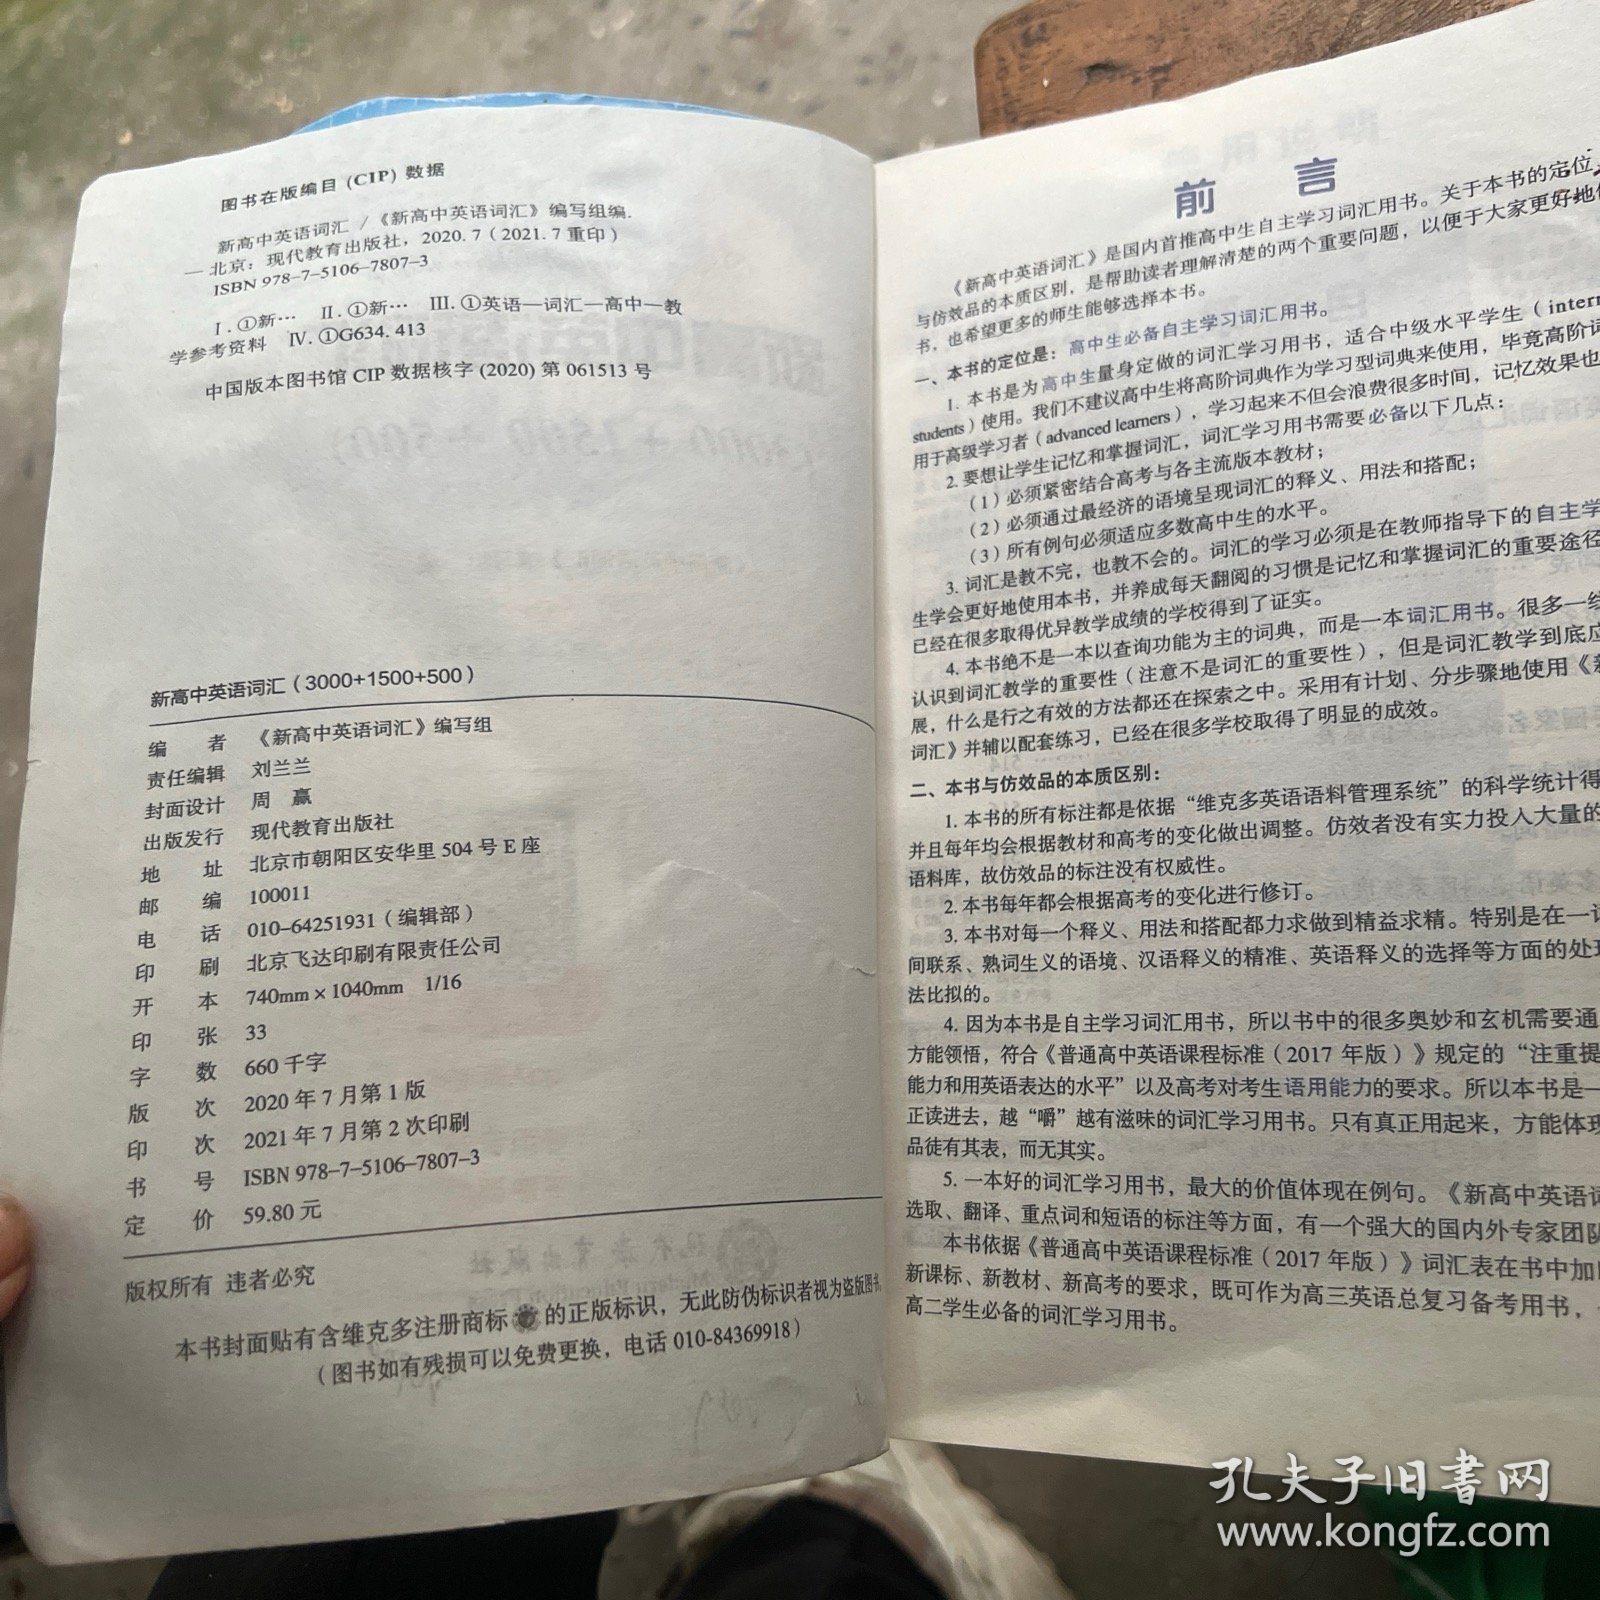 图书在版编目 (CIP) 数据
新高中英语词汇 / 《新高中英语词汇》编写组编.
— 北京：现代教育出版社，2020. 7 (2021. 7 重印)
ISBN 978-7-5106-7807-3
Ⅰ. ①新… Ⅱ. ①新… Ⅲ. ①英语—词汇—高中—教
学参考资料 Ⅳ. ①G634. 413
中国版本图书馆 CIP 数据核字 (2020) 第 061513 号
新高中英语词汇（3000+1500+500）
编 者 《新高中英语词汇》编写组
责任编辑 刘兰兰
封面设计 周 赢
出版发行 现代教育出版社
地 址 北京市朝阳区安华里 504 号 E 座
邮 编 100011
电 话 010-64251931（编辑部）
印 刷 北京飞达印刷有限责任公司
开 本 740mm × 1040mm 1/16
印 张 33
字 数 660 千字
版 次 2020 年 7 月第 1 版
印 次 2021 年 7 月第 2 次印刷
书 号 ISBN 978-7-5106-7807-3
定 价 59.80 元
版权所有 违者必究
本书封面贴有含维克多注册商标 的正版标识，无此防伪标识者视为盗版图书。
（图书如有残损可以免费更换，电话 010-84369918）
前 言
《新高中英语词汇》是国内首推高中生自主学习词汇用书。关于本书的定位
与仿效品的本质区别，是帮助读者理解清楚的两个重要问题，以便于大家更好地
书，也希望更多的师生能够选择本书。
一、本书的定位是：高中生必备自主学习词汇用书。
1. 本书是为高中生量身定做的词汇学习用书，适合中级水平学生（inter
students）使用。我们不建议高中生将高阶词典作为学习型词典来使用，毕竟高阶词
用于高级学习者（advanced learners），学习起来不但会浪费很多时间，记忆效果也
2. 要想让学生记忆和掌握词汇，词汇学习用书需要必备以下几点：
（1）必须紧密结合高考与各主流版本教材；
（2）必须通过最经济的语境呈现词汇的释义、用法和搭配；
（3）所有例句必须适应多数高中生的水平。
3. 词汇是教不完，也教不会的。词汇的学习必须是在教师指导下的自主学
生学会更好地使用本书，并养成每天翻阅的习惯是记忆和掌握词汇的重要途径
已经在很多取得优异教学成绩的学校得到了证实。
4. 本书绝不是一本以查询功能为主的词典，而是一本词汇用书。很多一线
认识到词汇教学的重要性（注意不是词汇的重要性），但是词汇教学到底应
展，什么是行之有效的方法都还在探索之中。采用有计划、分步骤地使用《新
词汇》并辅以配套练习，已经在很多学校取得了明显的成效。
二、本书与仿效品的本质区别：
1. 本书的所有标注都是依据“维克多英语语料管理系统”的科学统计得
并且每年均会根据教材和高考的变化做出调整。仿效者没有实力投入大量的
语料库，故仿效品的标注没有权威性。
2. 本书每年都会根据高考的变化进行修订。
3. 本书对每一个释义、用法和搭配都力求做到精益求精。特别是在一词
间联系、熟词生义的语境、汉语释义的精准、英语释义的选择等方面的处理
法比拟的。
4. 因为本书是自主学习词汇用书，所以书中的很多奥妙和玄机需要通
方能领悟，符合《普通高中英语课程标准（2017 年版）》规定的“注重提
能力和用英语表达的水平”以及高考对考生语用能力的要求。所以本书是一
正读进去，越“嚼”越有滋味的词汇学习用书。只有真正用起来，方能体现
品徒有其表，而无其实。
5. 一本好的词汇学习用书，最大的价值体现在例句。《新高中英语词
选取、翻译、重点词和短语的标注等方面，有一个强大的国内外专家团队
本书依据《普通高中英语课程标准（2017 年版）》词汇表在书中加
新课标、新教材、新高考的要求，既可作为高三英语总复习备考用书，
高二学生必备的词汇学习用书。
孔夫子旧书网
www.kongfz.com